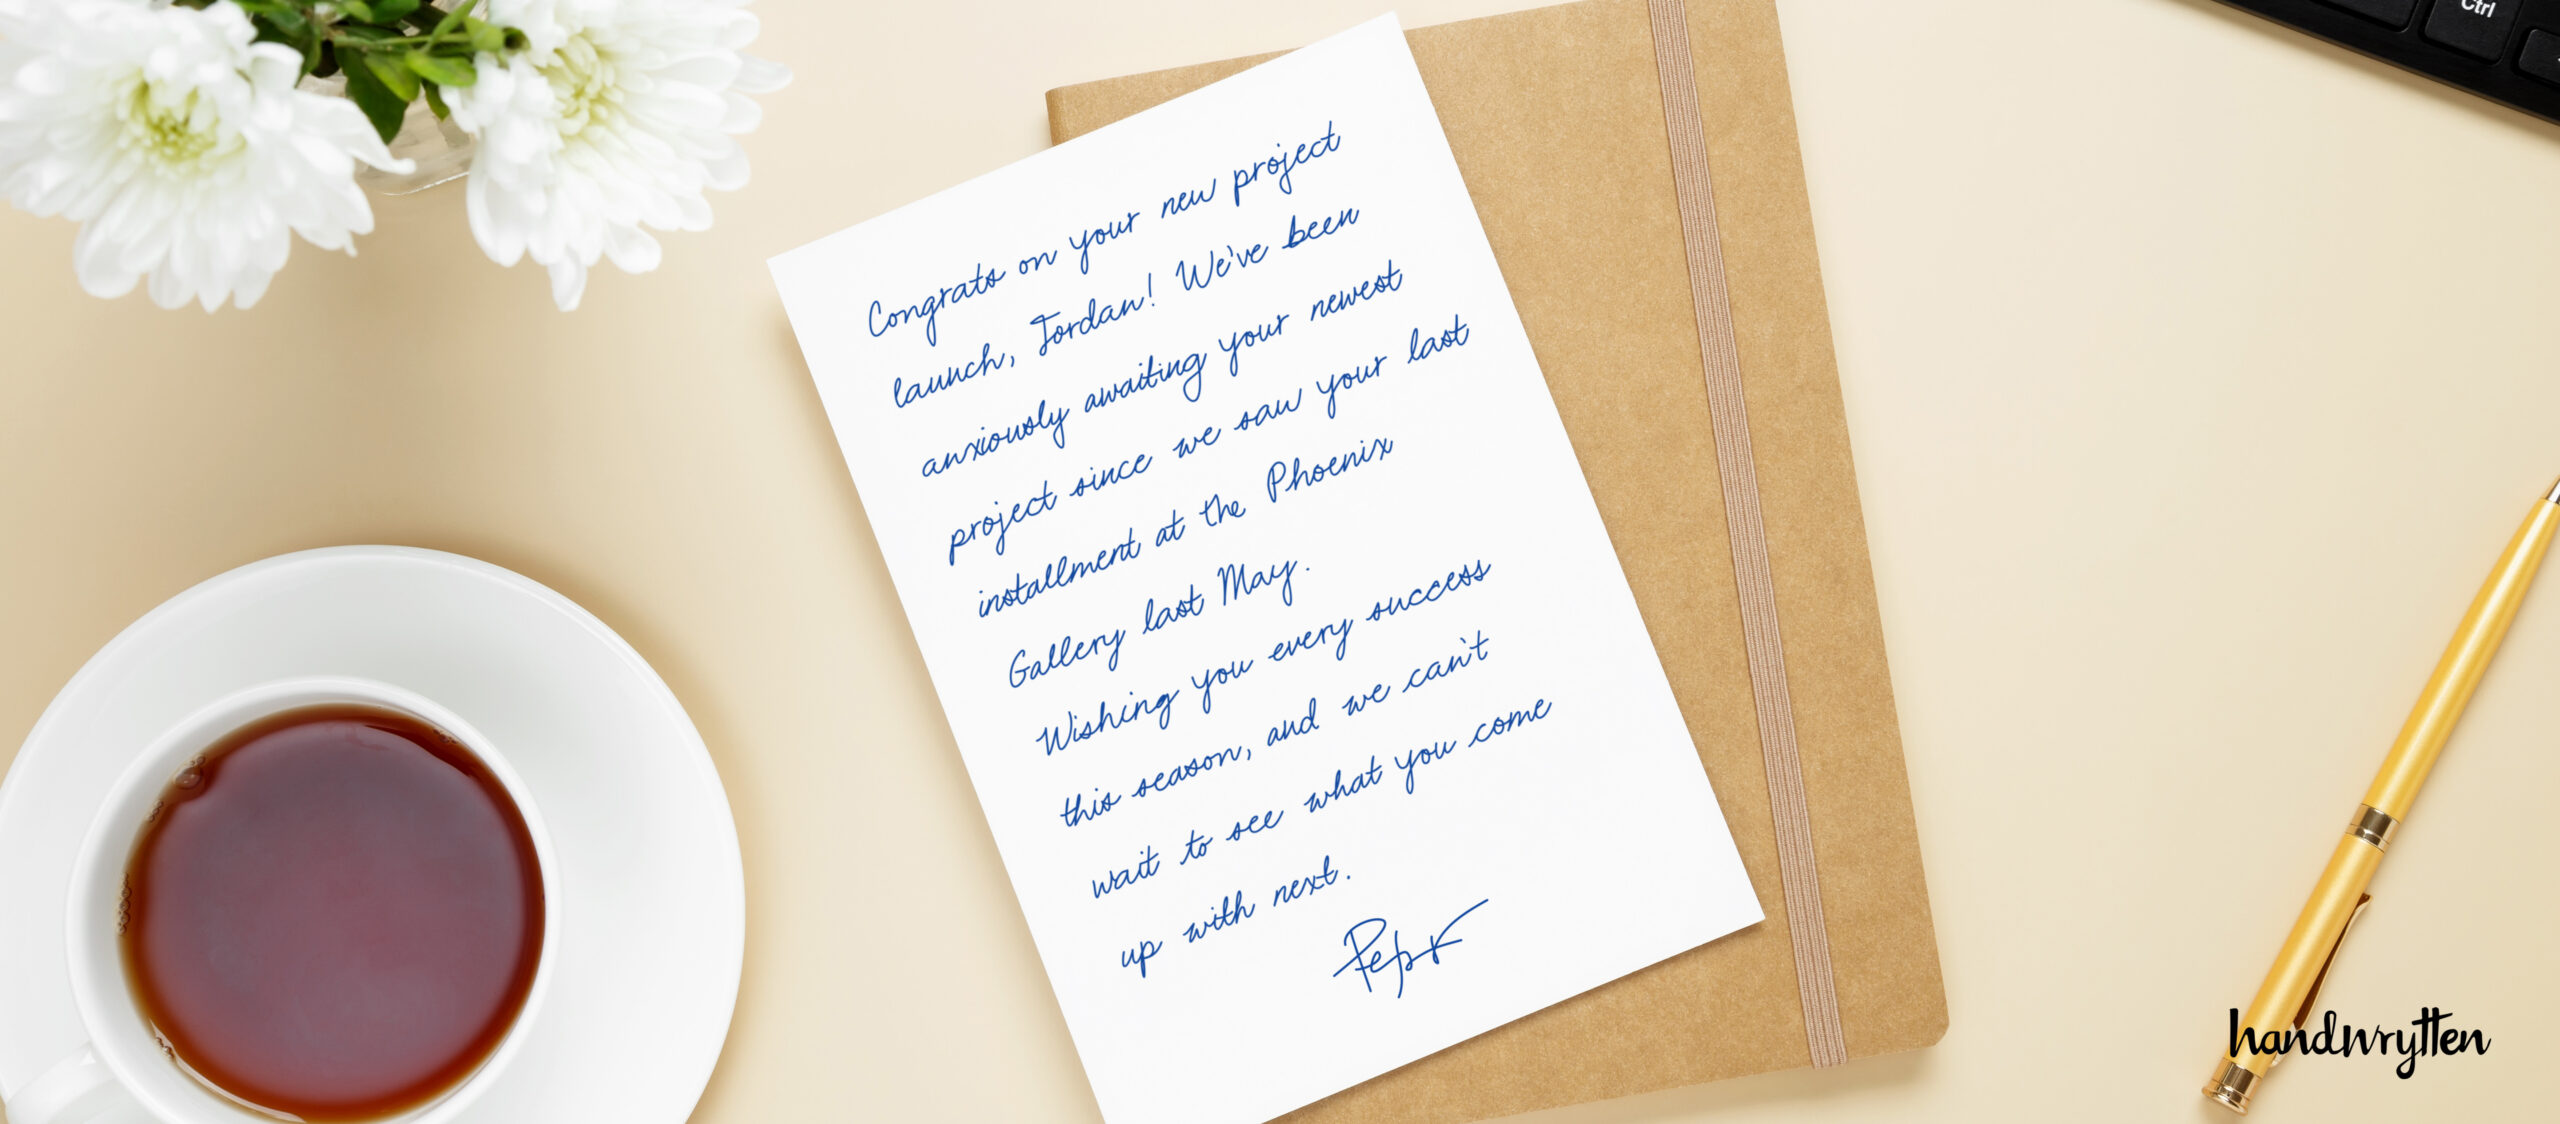 Ctrl
Congrats on your new project
launch, Jordan! We've been
anxiously awaiting your newest
project since we saw your last
installment at the Phoenix
Gallery last May.
Wishing you every success
this season, and we can't
wait to see what you come
up with next.
handwrytten